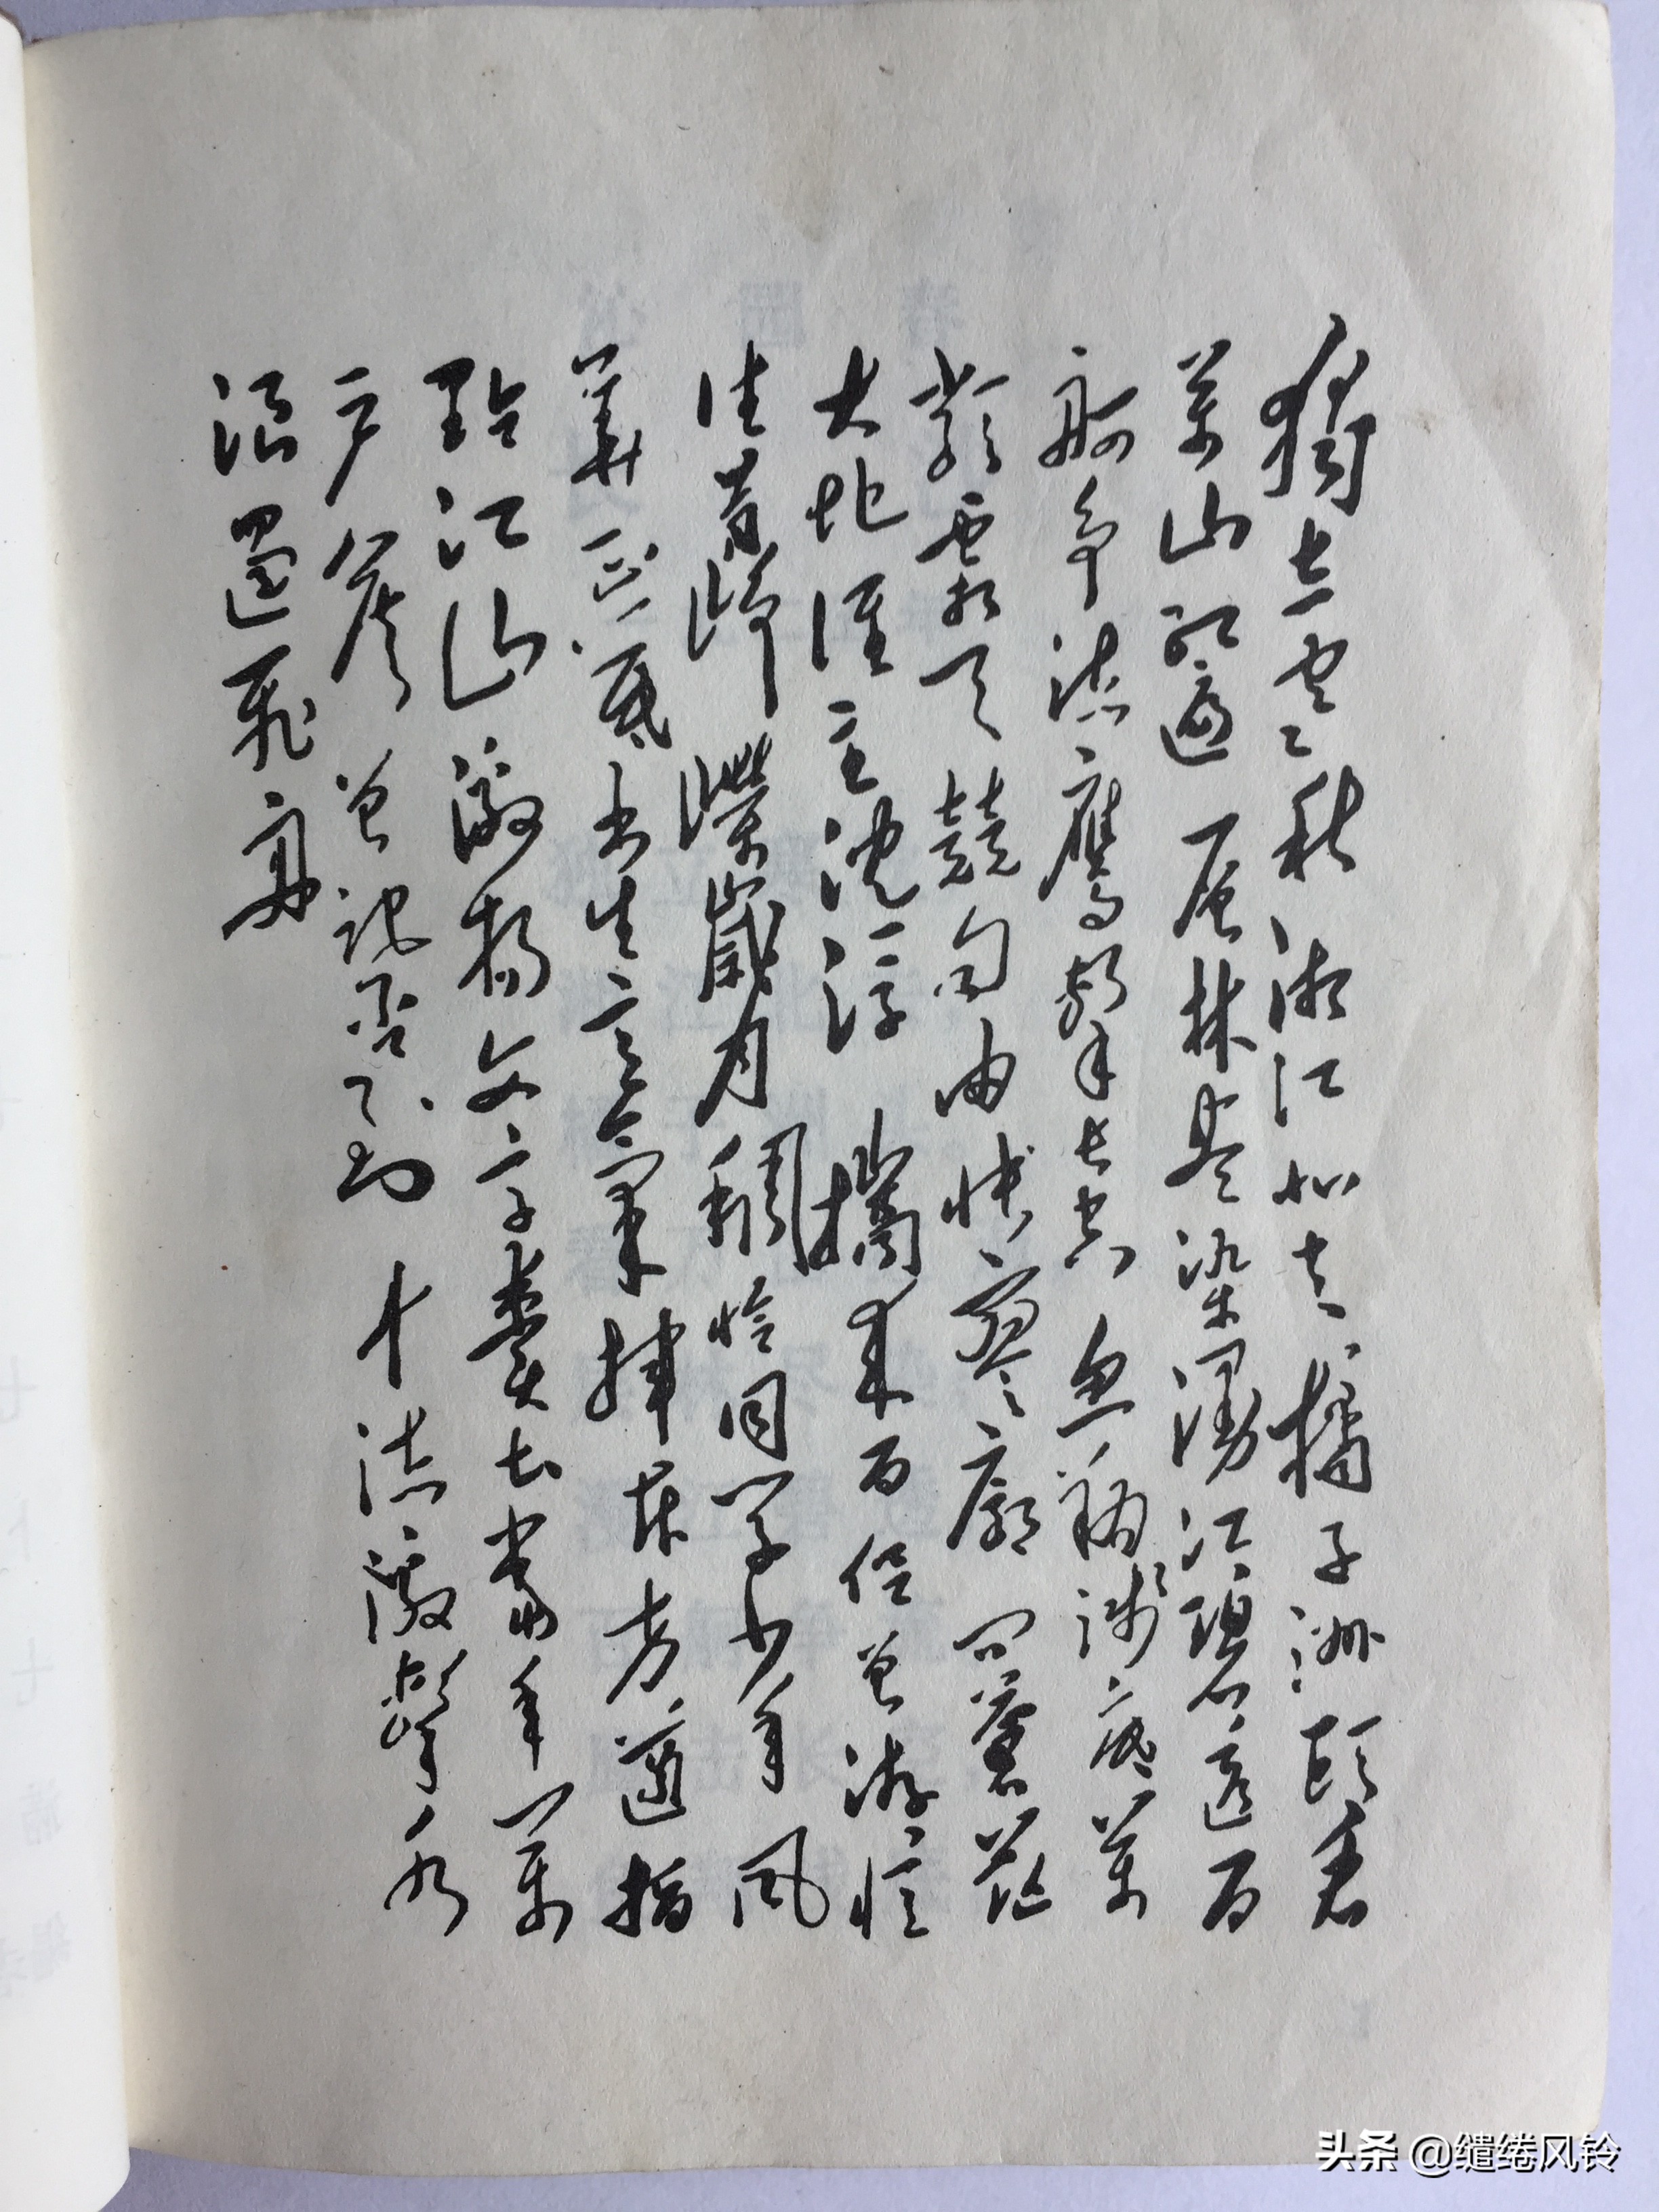 獨立寒秋湘江北去橘子洲頭看
萬山紅遍層林盡染漫江碧透百
舸爭流鷹擊長空魚翔淺底萬
類霜天競自由悵寥廓問蒼茫
大地誰主沈浮攜來百侶曾游憶
往昔崢嶸歲月稠恰同學少年風
華正茂書生意氣揮斥方遒指
點江山激揚文字糞土當年萬
户侯曾記否到中流激擊水
浪遏飛舟
头条 @缱绻风铃